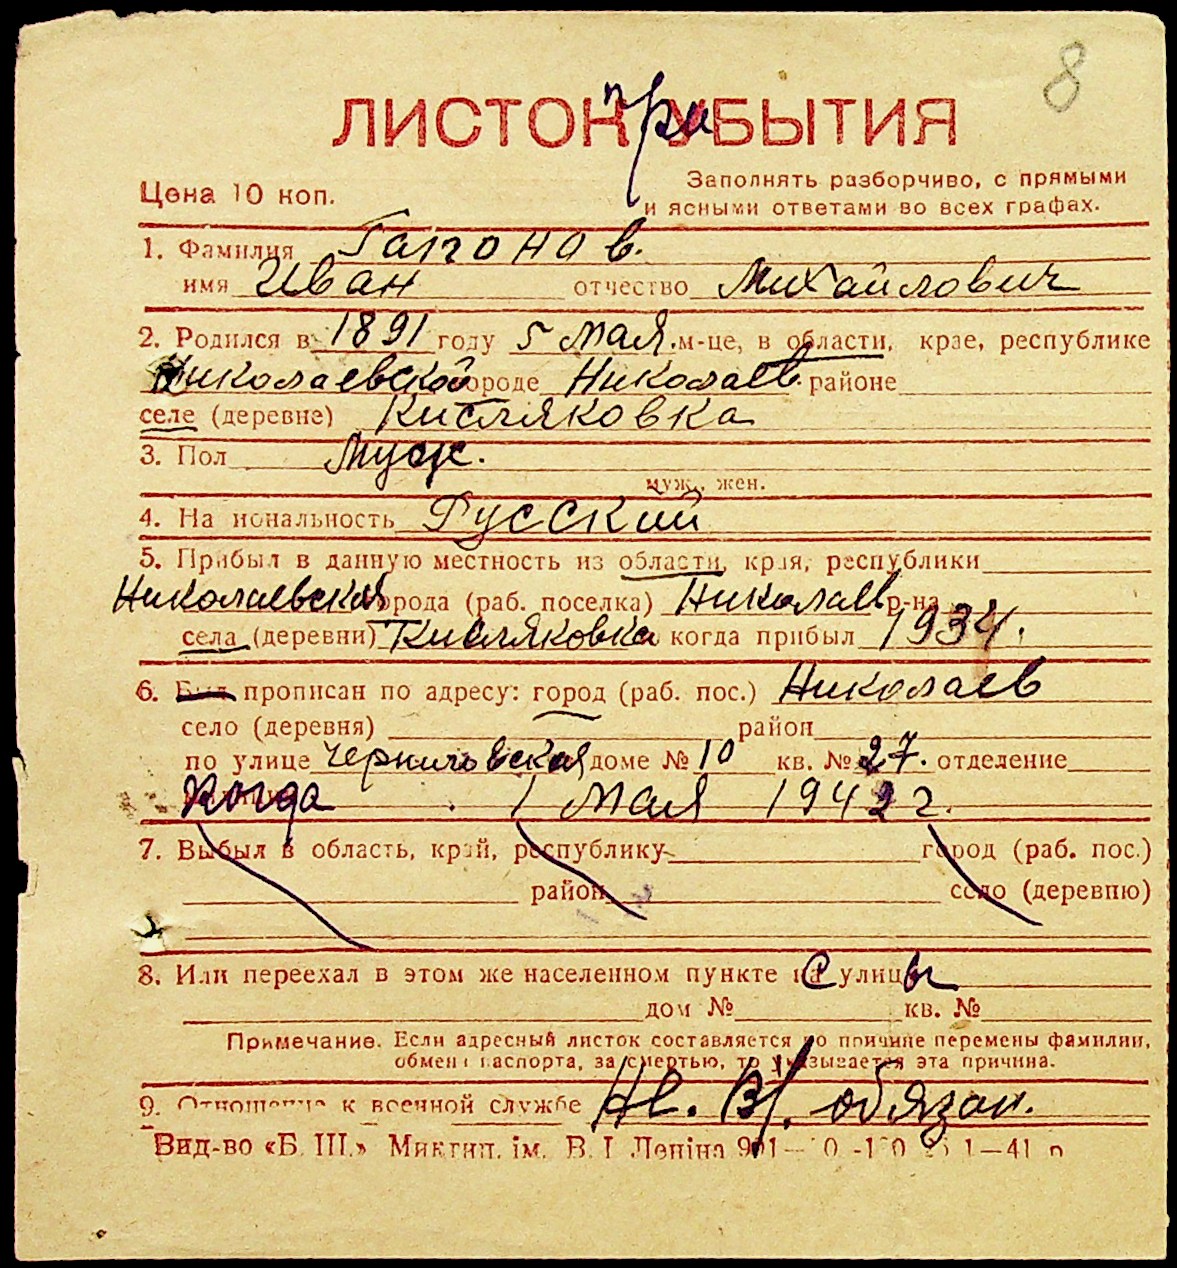 8
ЛИСТОК при УБЫТИЯ
Цена 10 коп.
Заполнять разборчиво, с прямыми
и ясными ответами во всех графах.
1. Фамилия Гапонов.
имя Иван отчество Михайлович
2. Родился в 1891 году 5 мая. м-це, в области, крае, республике
Николаевской городе Николаев. районе
селе (деревне) Кисляковка
3. Пол Муж.
муж., жен.
4. Национальность Русский
5. Прибыл в данную местность из области, края, республики
Николаевская города (раб. поселка) Николаев р-на
села (деревни) Кисляковка когда прибыл 1934.
6. Был прописан по адресу: город (раб. пос.) Николаев
село (деревня) район
по улице доме № 10 кв. № 27. отделение
Когда 1 Мая 1942 г.
7. Выбыл в область, край, республику город (раб. пос.)
район село (деревню)
8. Или переехал в этом же населенном пункте с улицы
дом № кв. №
Примечание. Если адресный листок составляется по причине перемены фамилии,
обмена паспорта, за смертью, то указывается эта причина.
9. Отношение к военной службе Не. В/. обязан.
Вид-во «Б. Ш.» Миктип. ім. В. І. Леніна